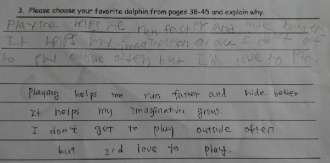 3. Please choose your favorite dolphin from pages 38-45 and explain why.
Playing helps me run faster and hide better
It helps my imagination grow. I don't get
to play outside often but I'd love to play
Playing helps me run faster and hide better
It helps my imagination grow.
I don't get to play outside often
but I'd love to play.